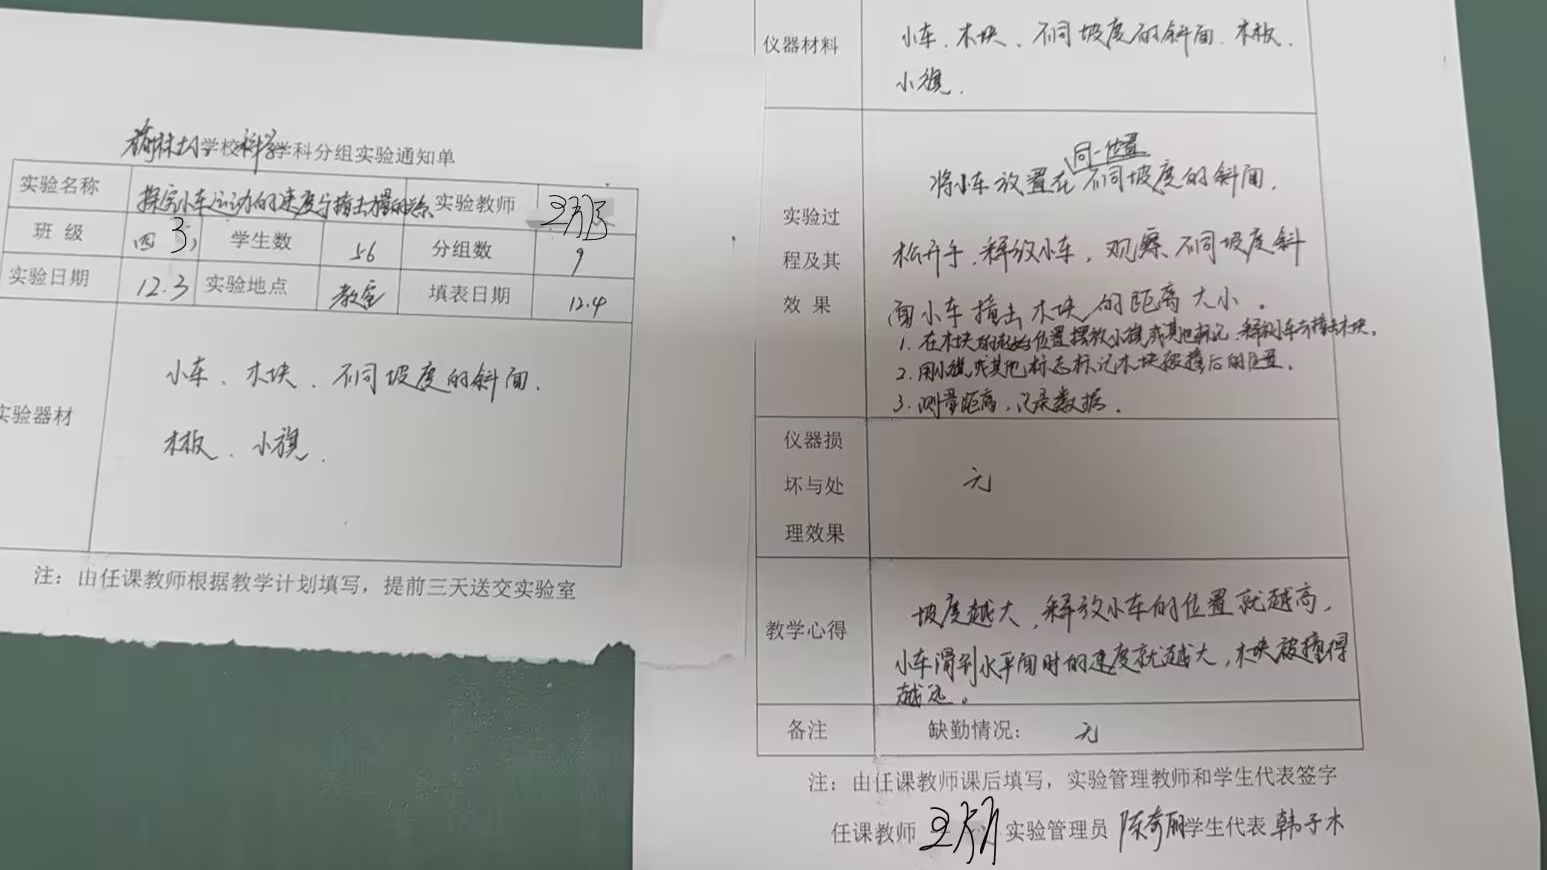 学校科学学科分组实验通知单
实验名称 探究小车运动的速度与撞击 实验教师
班 级 四 3 学生数 56 分组数 9
实验日期 12.3 实验地点 教室 填表日期 12.4
实验器材
小车、木块、不同坡度的斜面、
木板、小旗.
注：由任课教师根据教学计划填写，提前三天送交实验室
仪器材料
小车、木块、不同坡度的斜面、木板、
小旗.
实验过程及其效果
同一位置
将小车放置在不同坡度的斜面，
松开手，释放小车，观察不同坡度斜
面小车撞击木块的距离大小。
1. 在木块的起始位置摆放小旗或其他标记，释放小车去撞击木块。
2. 用小旗或其他标志标记木块被撞后的位置。
3. 测量距离，记录数据。
仪器损坏与处理效果
无
教学心得
坡度越大，释放小车的位置就越高，
小车滑到水平面时的速度就越大，木块被撞得
越远。
备注 缺勤情况： 无
注：由任课教师课后填写，实验管理教师和学生代表签字
任课教师 实验管理员 陈奇丽 学生代表 韩子木